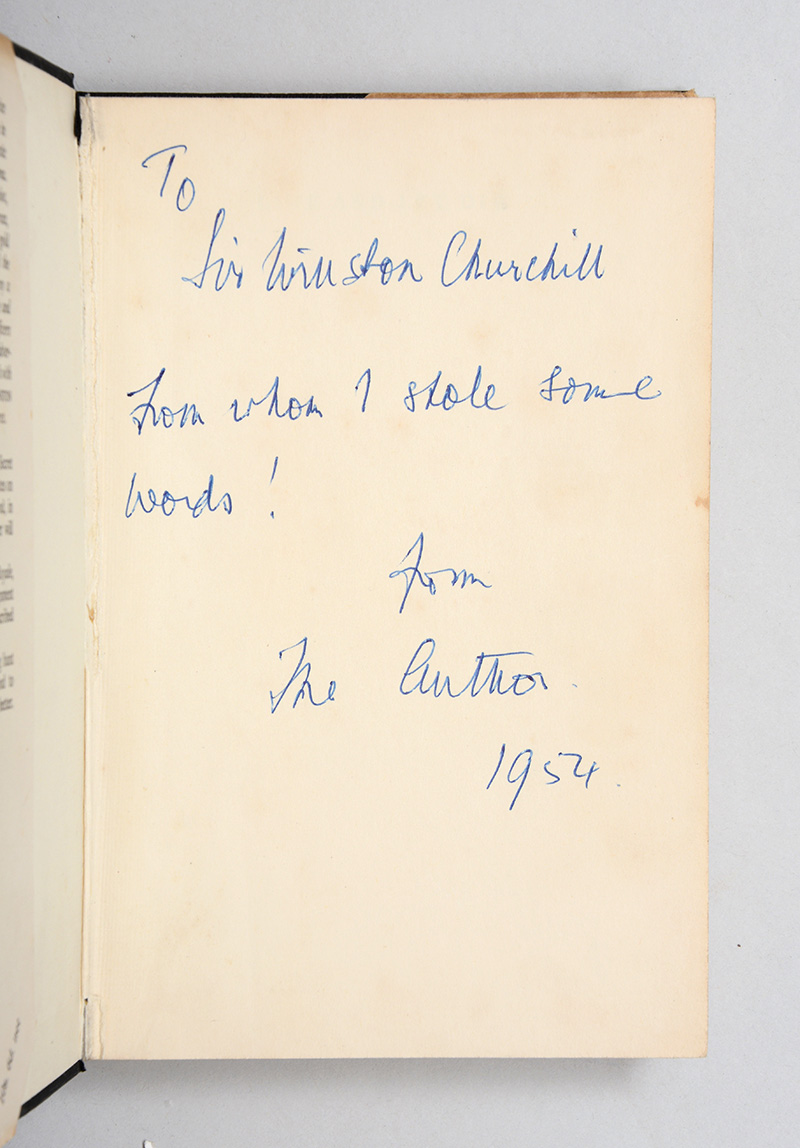 To
Sir Winston Churchill
From whom I stole some
words!
From
The Author.
1954.